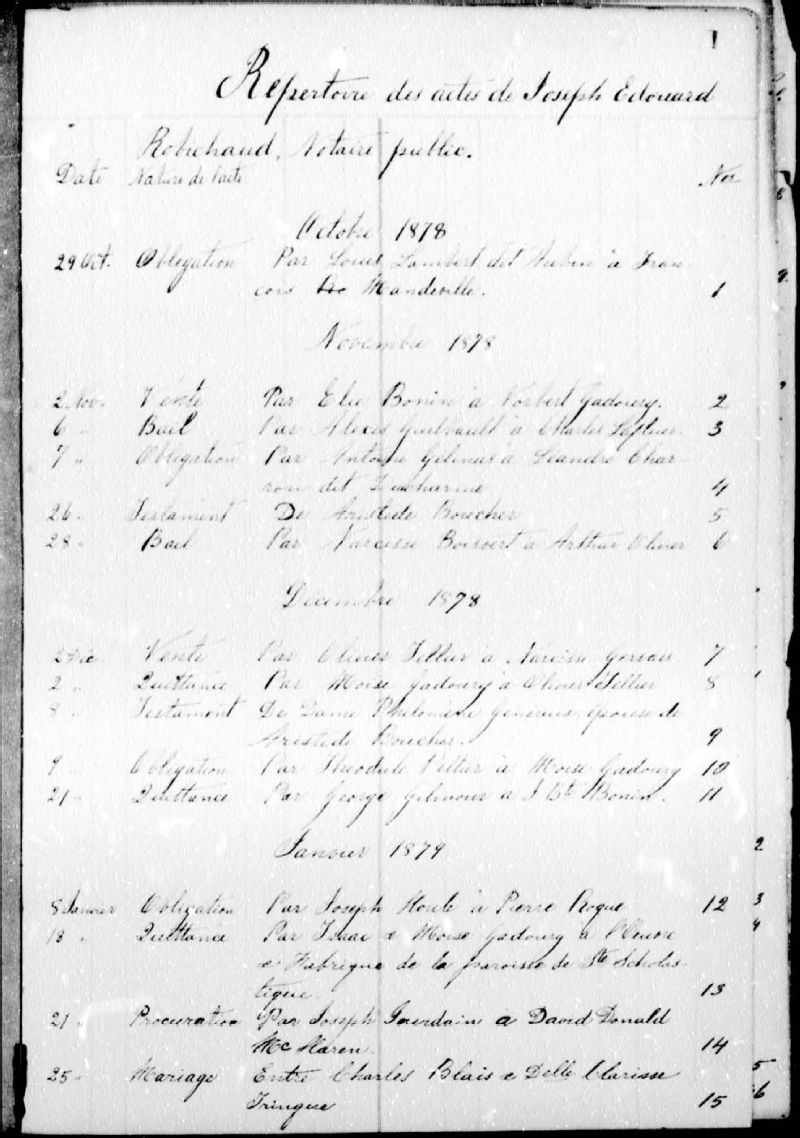 1
Répertoire des actes de Joseph Edouard
Robichaud, Notaire public.
Date Nature de l'acte Nos
Octobre 1878
29 Oct. Obligation Par Louis Lambert dit Aubin à Fran-
cois Mandeville. 1
Novembre 1878
2 Nov. Vente Par Elie Bonin à Norbert Gadoury. 2
6 " Bail Par Alexis Guilbault à Charles 3
7 " Obligation Par Antoine Gelinas à Léandre Char-
ron dit Ducharme 4
26 " Testament De Aristide Boucher 5
28 " Bail Par Narcisse Boisvert à Arthur Olivier 6
Decembre 1878
2 Dec Vente Par Olivier Tellier à Narcisse Gervais 7
2 " Quittance Par Moïse Gadoury à Olivier Tellier 8
8 " Testament De Dame Philomène Genereux, épouse de
Aristide Boucher. 9
9 " Obligation Par Théodule Peltier à Moise Gadoury 10
21 " Quittance Par George Gilmour à J Bte Bonin. 11
Janvier 1879
8 Janvier Obligation Par Joseph Houle à Pierre Roque 12
18 " Quittance Par Isaac & Moïse Gadoury à l'Oeuvre
& Fabrique de la paroisse de Ste Scholas-
tique. 13
21 " Procuration Par Joseph Gourdain a David Donald
Mc Laren. 14
25 " Mariage Entre Charles Blais & Delle Clarisse
Tringue 15